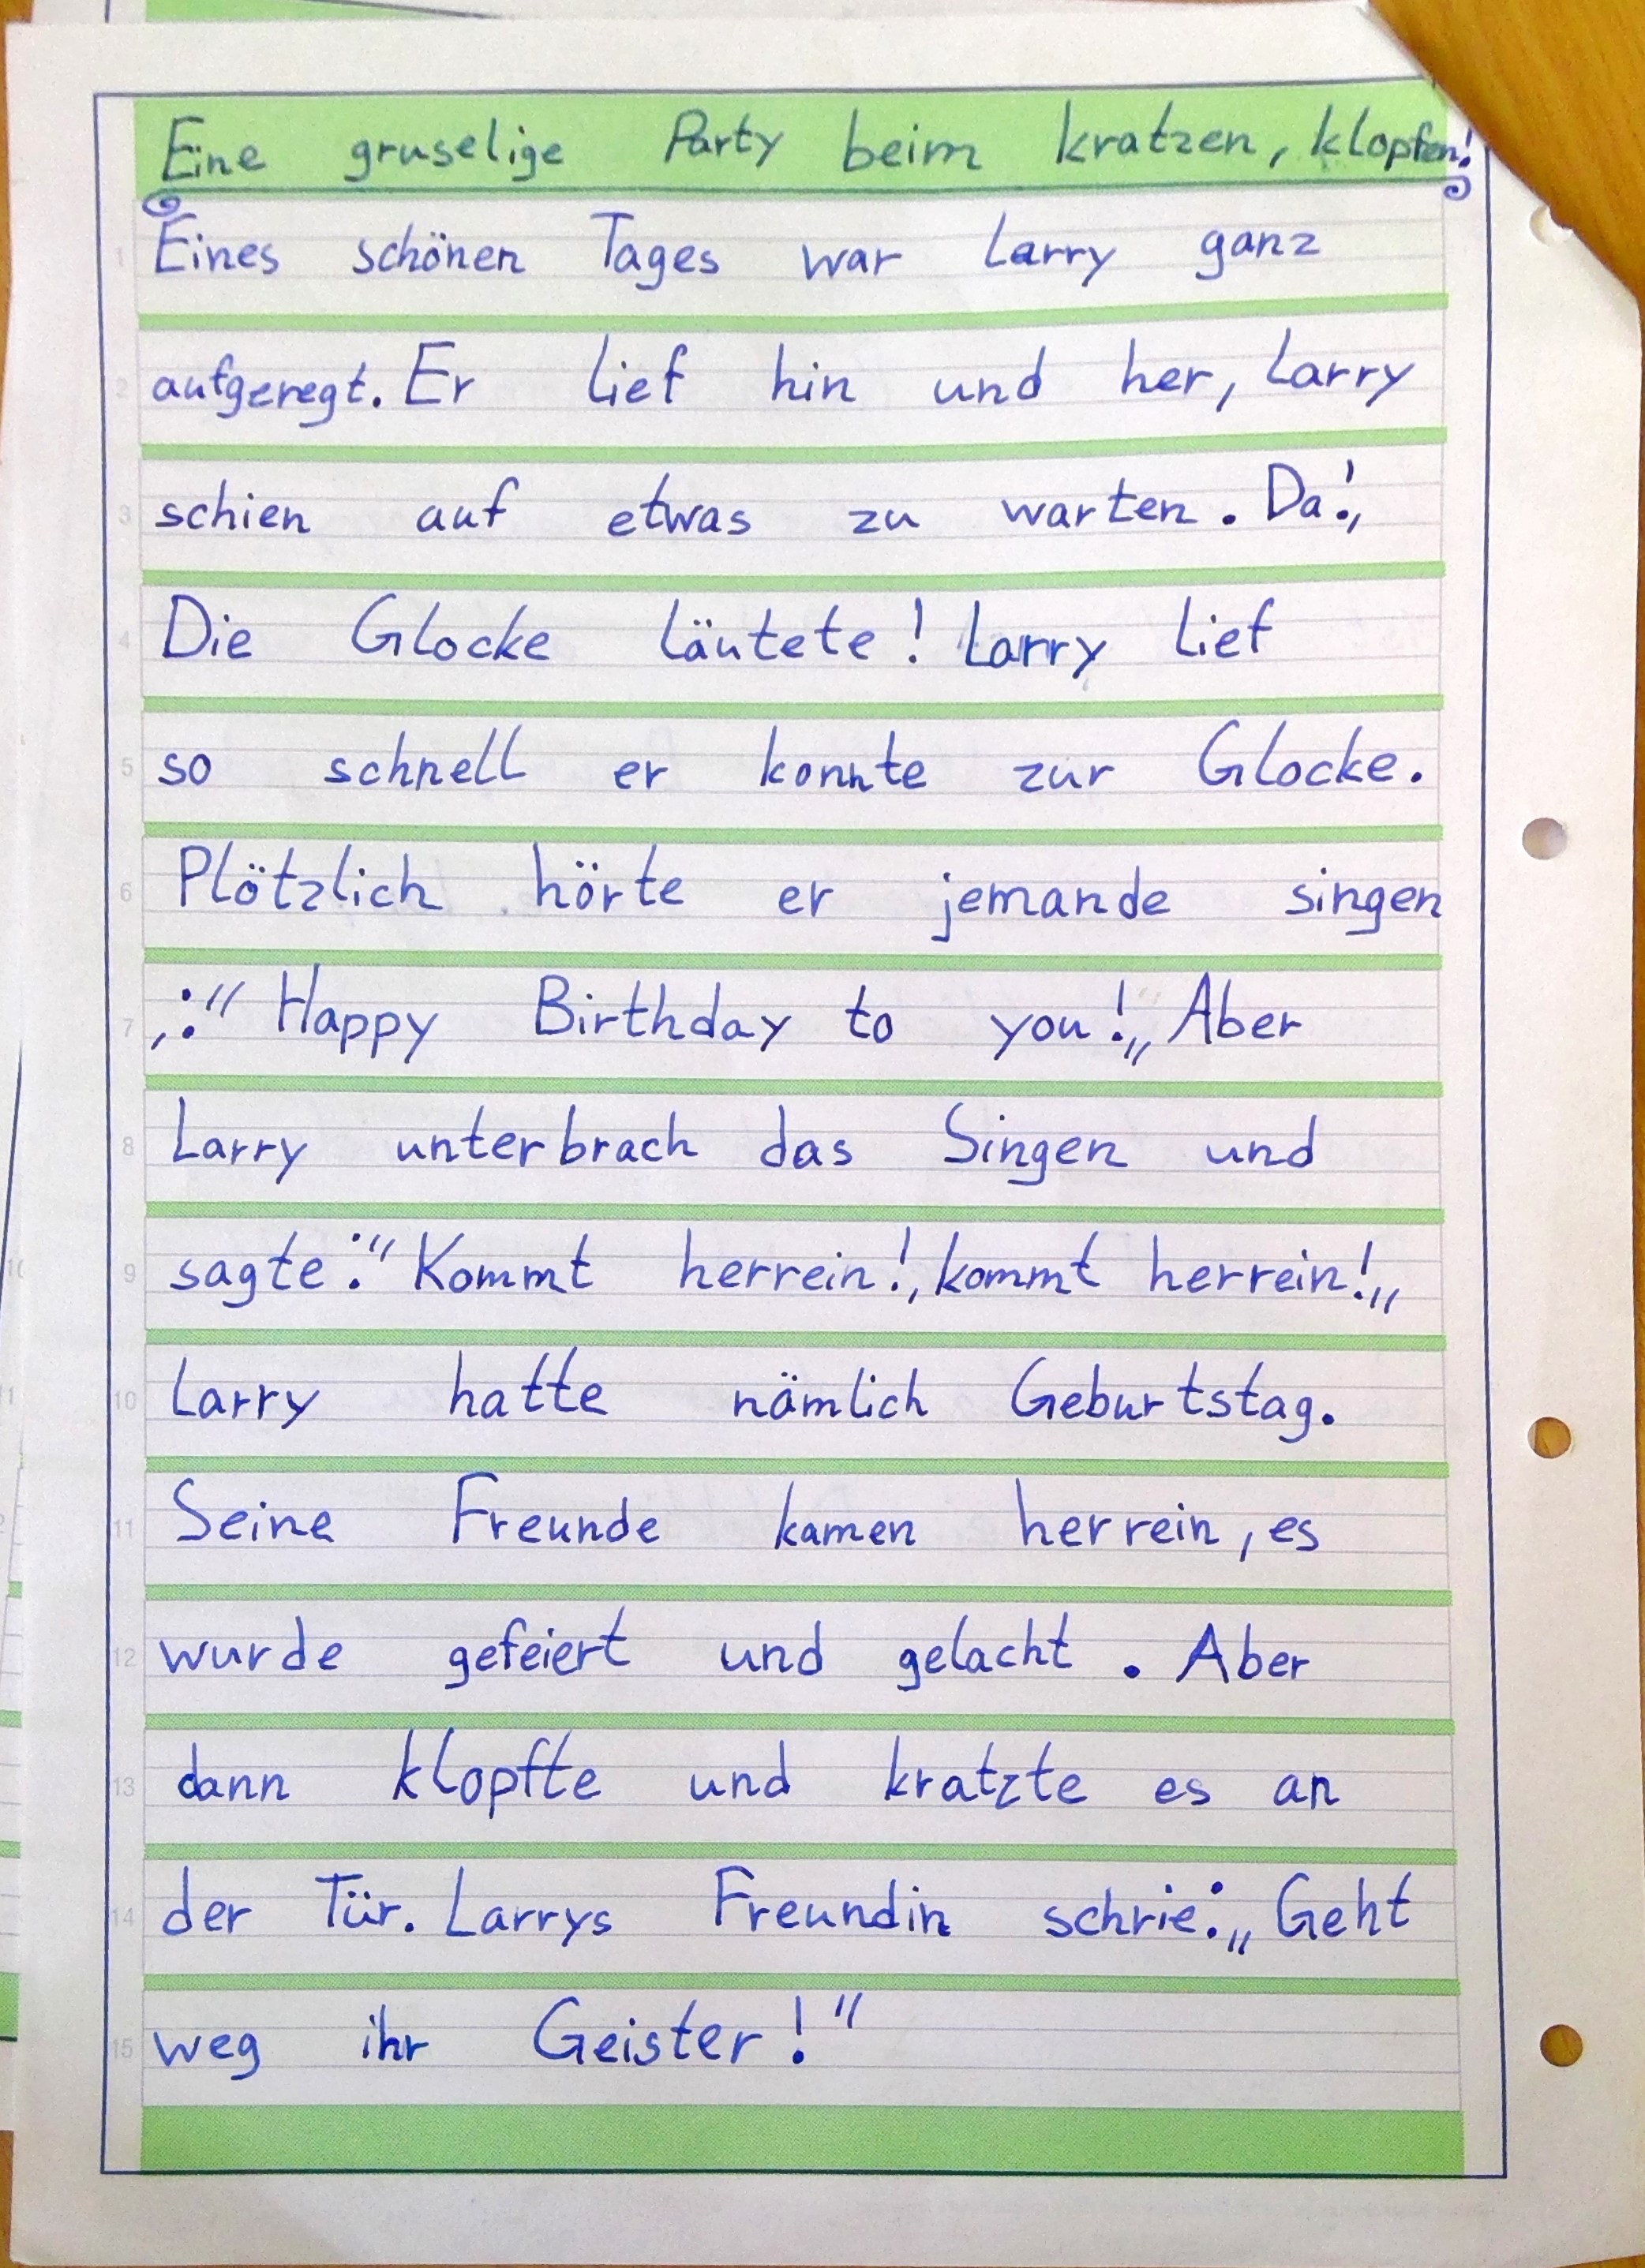 Eine gruselige Party beim kratzen, klopfen!
Eines schönen Tages war Larry ganz
aufgeregt. Er lief hin und her, Larry
schien auf etwas zu warten. Da!,
Die Glocke läutete! Larry lief
so schnell er konnte zur Glocke.
Plötzlich hörte er jemande singen
,:" Happy Birthday to you!„ Aber
Larry unterbrach das Singen und
sagte:" Kommt herrein!, kommt herrein!„
Larry hatte nämlich Geburtstag.
Seine Freunde kamen herrein, es
wurde gefeiert und gelacht. Aber
dann klopfte und kratzte es an
der Tür. Larrys Freundin schrie:„ Geht
weg ihr Geister!"